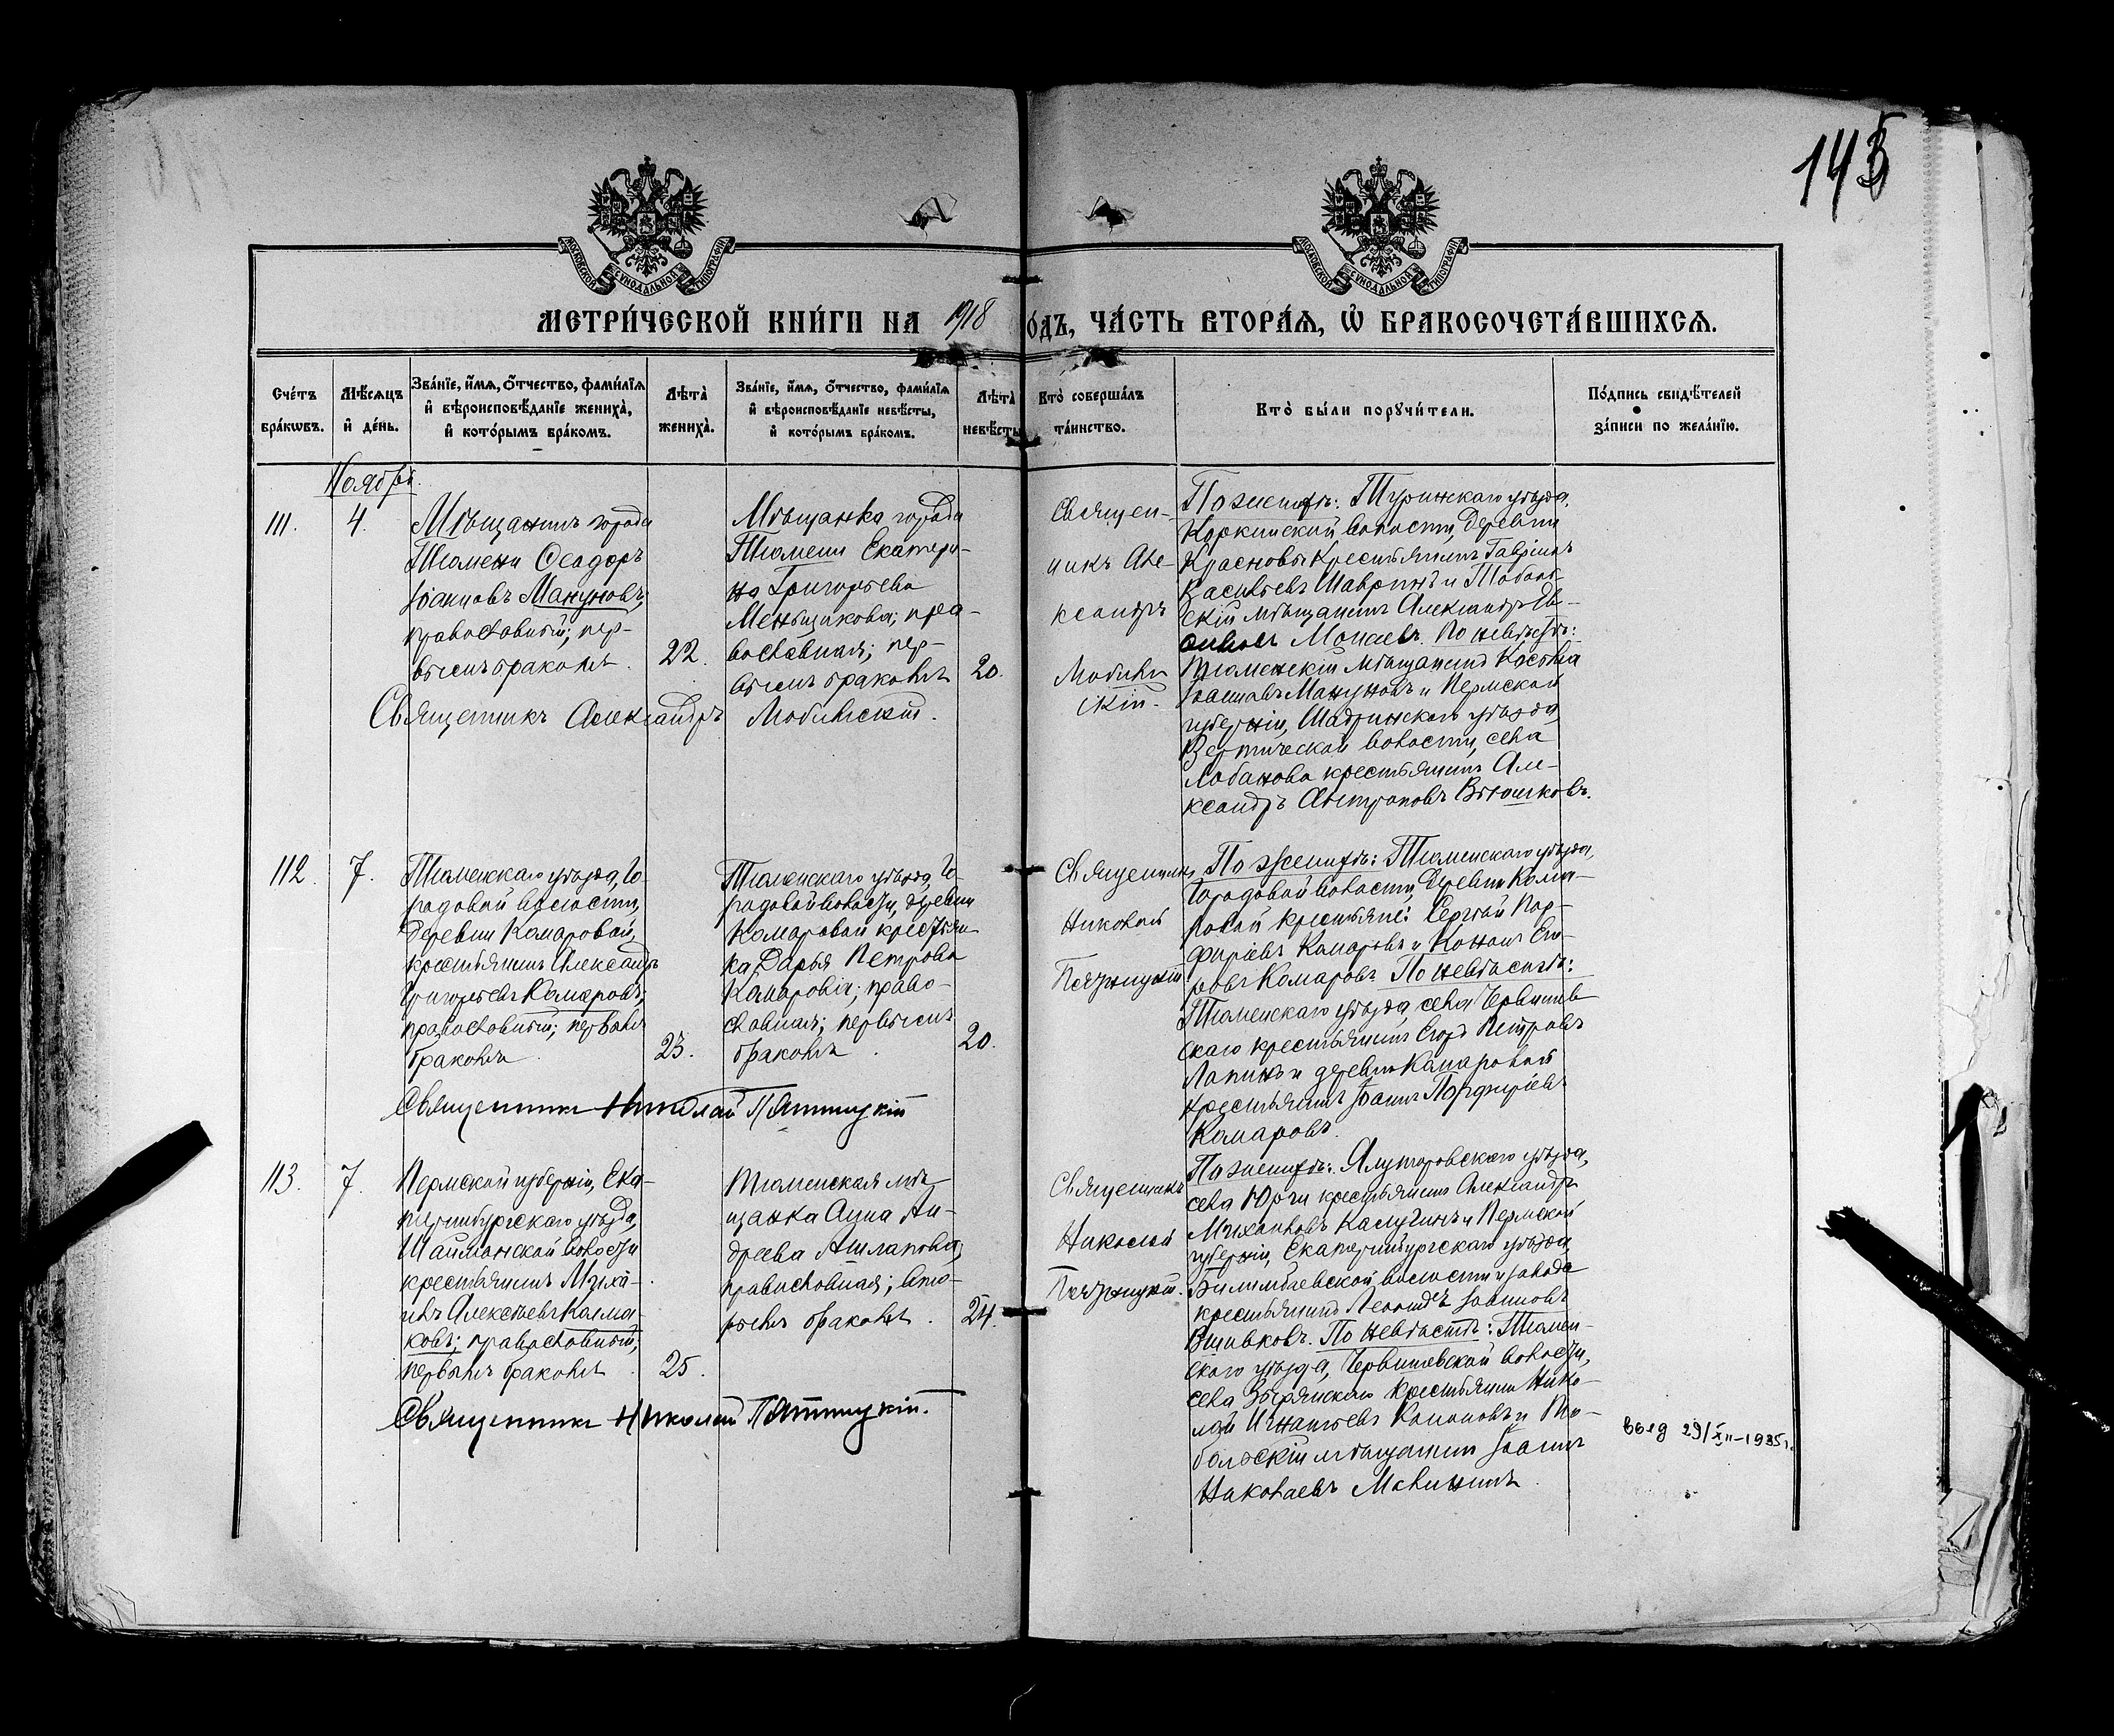 145
МОСКОВСКОЙ СѴНОДАЛЬНОЙ ТИПОГРАФІИ
МОСКОВСКОЙ СѴНОДАЛЬНОЙ ТИПОГРАФІИ
МЕТРИ́ЧЕСКОЙ КНИ́ГИ НА 1918 ОДЪ, ЧА́СТЬ ВТОРА́Ѧ, Ѡ҆ БРАКОСОЧЕТА́ВШИХСѦ.
Сче́тъ бра́кѡвъ.
Мѣ́сѧцъ и҆ де́нь.
Зва́нїе, и҆́мѧ, ѻ҆́тчество, фами́лїѧ
и҆ вѣроисповѣ́данїе жениха̀,
и҆ кото́рымъ бра́комъ.
Лѣ́та жениха̀.
Зва́нїе, и҆́мѧ, ѻ҆́тчество, фами́лїѧ
и҆ вѣроисповѣ́данїе невѣ́сты,
и҆ кото́рымъ бра́комъ.
Лѣ́та невѣ́сты
Кто̀ соверша́лъ та́инство.
Кто̀ бы́ли порꙋчи́тели.
По́дпись свидѣ́телей
за́писи по жела́нїю.
Ноябрь.
111.
4.
Мѣщанинъ города
Тюмени Ѳеодоръ
Іоанновъ Мануновъ;
православный; пер-
вымъ бракомъ.
22.
Мѣщанка города
Тюмени Екатери-
на Григорьева
Меньщикова; пра-
вославная; пер-
вымъ бракомъ
20.
Священ-
никъ Але-
ксандръ
Любин
скій.
По женихѣ: Туринскаго уѣзда,
Коркинской волости, деревни
Красновы крестьянинъ Гавріилъ
Васильевъ Шавринъ и Тоболь-
скій мѣщанинъ Александръ
Мокаевъ. По невѣстѣ:
Тюменскій мѣщанинъ Косьма
Іоанновъ Мануновъ и Пермской
губерніи, Шадринскаго уѣзда
волости, села
Лобанова крестьянинъ Але-
ксандръ Вьюшковъ.
Священникъ Александръ Любинскій.
112.
7.
Тюменскаго уѣзда, Го-
родовой волости,
деревни Комаровой,
крестьянинъ Александръ
Григорьевъ Комаровъ;
православный; первымъ
бракомъ.
23.
Тюменскаго уѣзда, Го-
родовой волости, деревни
Комаровой крестьян-
ка, Дарья Петрова
Комарова; право-
славная; первымъ
бракомъ.
20.
Священникъ
Николай
Пятницкій
По женихѣ: Тюменскаго уѣзда,
Городовой волости, деревни Кома-
ровой крестьяне: Сергѣй Пор-
фирьевъ Комаровъ и Кононъ Его-
ровъ Комаровъ. По невѣстѣ:
Тюменскаго уѣзда, села Червишев-
скаго крестьянинъ Егоръ Петровъ
Лапинъ и деревни Комаровой
крестьянинъ Іоаннъ Порфирьевъ
Комаровъ.
Священникъ Николай Пятницкій
113.
7.
Пермской губерніи, Ека-
теринбургскаго уѣзда,
Шайтанской волости
крестьянинъ Миха-
илъ Алексѣевъ Калма-
ковъ; православный;
первымъ бракомъ.
25.
Тюменская мѣ-
щанка Анна Ан-
дреева Ашлапова;
православная; вто-
рымъ бракомъ.
24.
Священникъ
Николай
Пятницкій.
По женихѣ: Ялуторовскаго уѣзда,
села Юрги крестьянинъ Александръ
Михайловъ Калугинъ и Пермской
губерніи, Екатеринбургскаго уѣзда,
Билимбаевской волости и завода
крестьянинъ Леонидъ Іоанновъ
Вшивковъ. По невѣстѣ: Тюмен-
скаго уѣзда, Червишевской волости,
села Зырянскаго крестьянинъ Нико-
лай Игнатьевъ Кононовъ и То-
больскій мѣщанинъ Іоаннъ
Николаевъ Малининъ.
Священникъ Николай Пятницкій.
выд 29/XII-1935г.